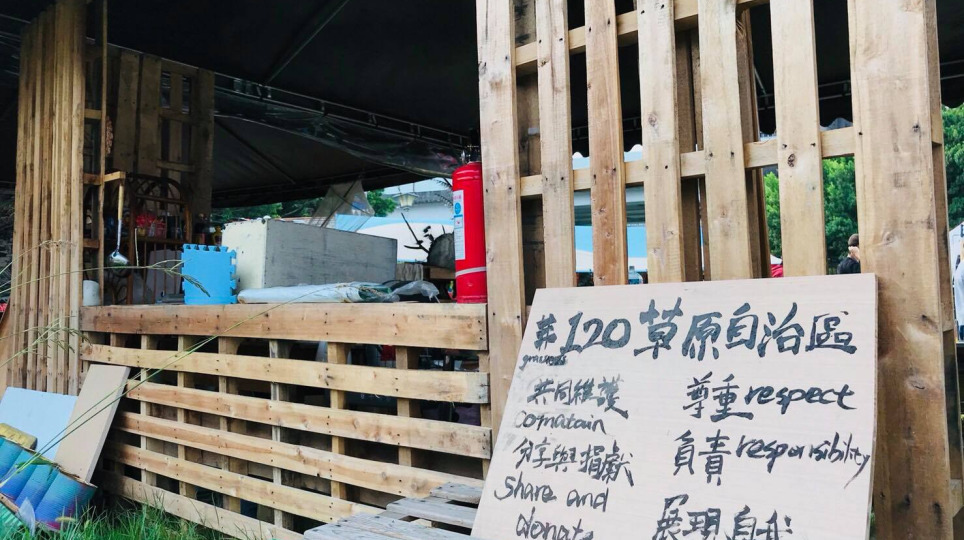 #120 草原自治區
共同維護
comatain
分享與捐獻
share and
donate
尊重 respect
負責 responsibility
展現自我